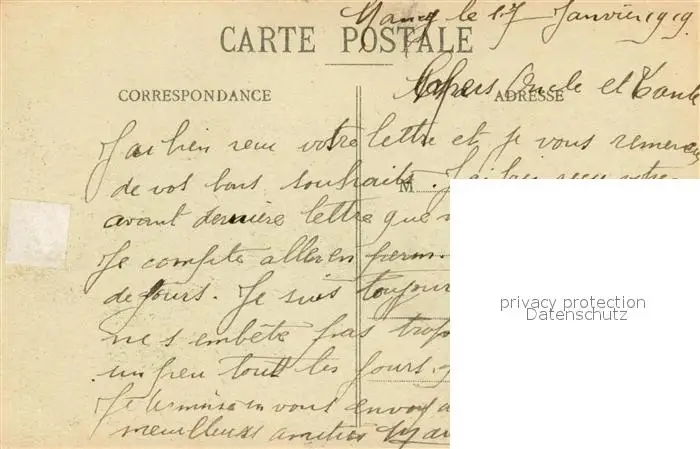 Nancy le 17 Janvier 1919.
CARTE POSTALE
Chers Oncle et Tante
CORRESPONDANCE
ADRESSE
J'ai bien recu votre lettre et je vous remercie
de vos bons souhaits. J'ai bien recu votre
M
avant dernière lettre que
Je compte aller en perm.
de jours. Je suis toujours
ne s'embète pas trop
un peu tout les jours.
Je termine en vous envoya
meuilleurs amitiés
privacy protection
Datenschutz